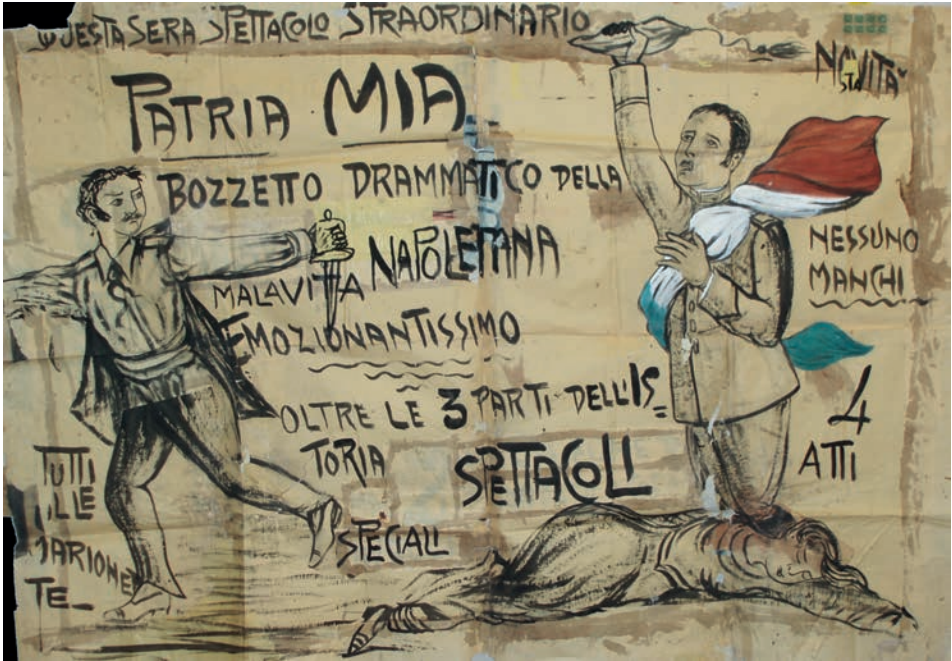 QUESTA SERA SPETTACOLO STRAORDINARIO
NOVITA'
PATRIA MIA
BOZZETTO DRAMMATICO DELLA
MALAVITA NAPOLETANA
EMOZIONANTISSIMO
NESSUNO
MANCHI
OLTRE LE 3 PARTI DELL'IS=
TORIA SPETTACOLI
SPECIALI
4
ATTI
TUTTI
ALLE
MARIONET
TE_